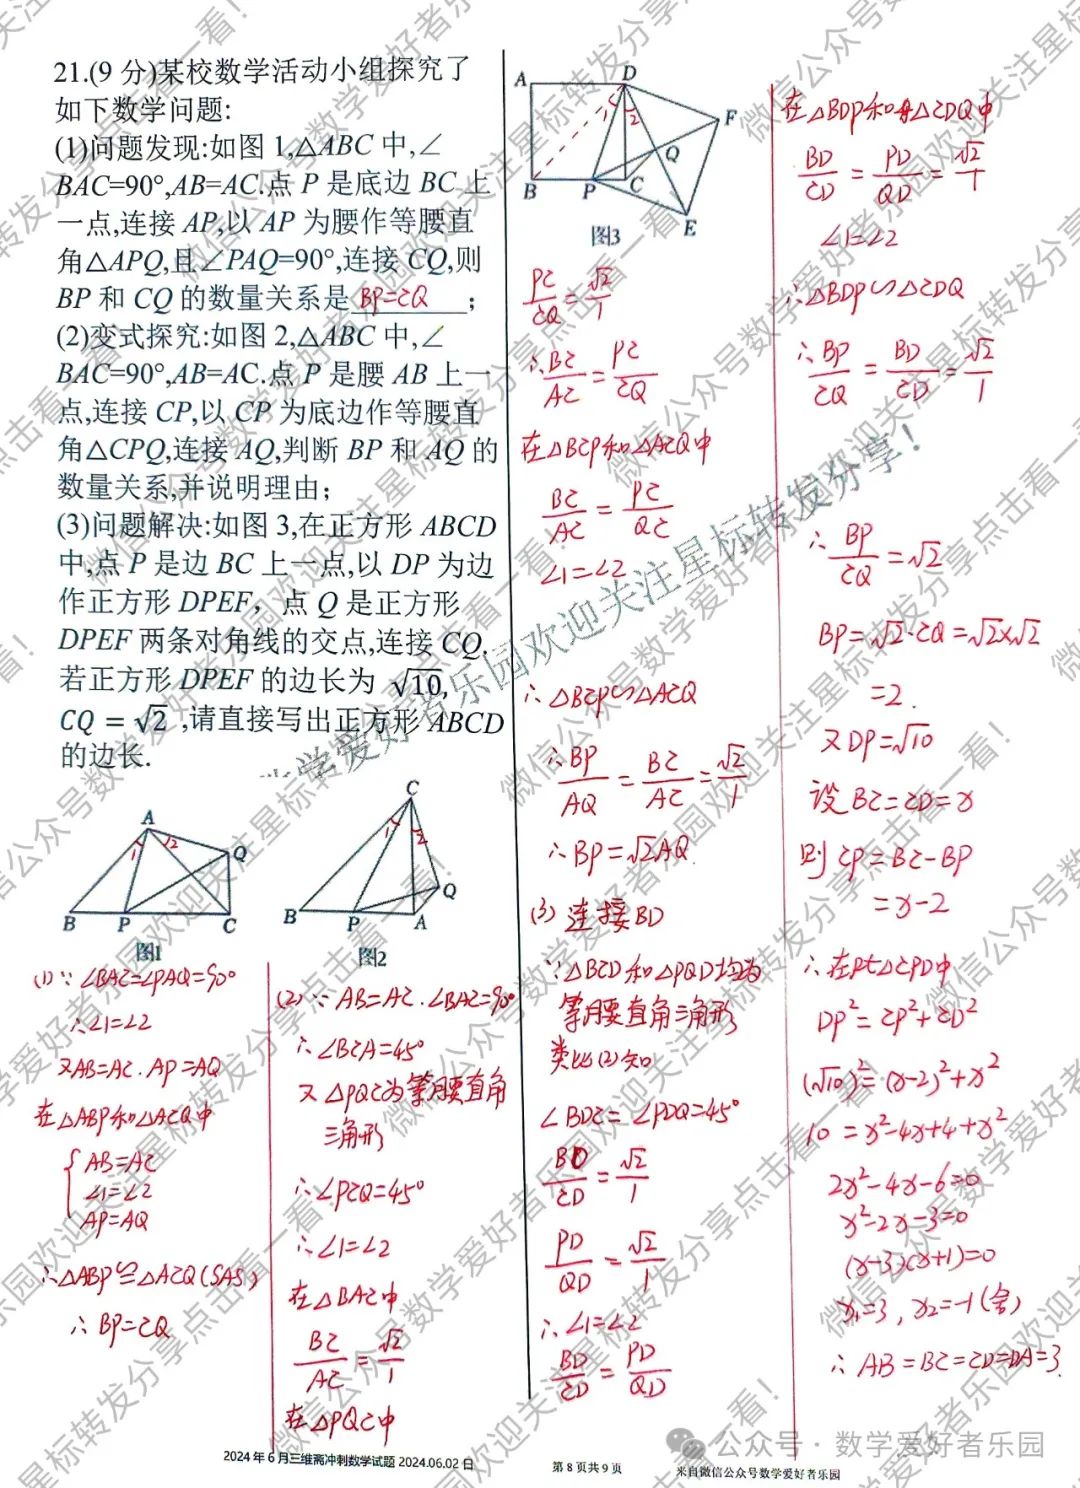 21.(9 分)某校数学活动小组探究了
如下数学问题:
(1)问题发现:如图 1,△ABC 中,∠
BAC=90°,AB=AC.点 P 是底边 BC 上
一点,连接 AP,以 AP 为腰作等腰直
角△APQ,且∠PAQ=90°,连接 CQ,则
BP 和 CQ 的数量关系是 BP=CQ ;
(2)变式探究:如图 2,△ABC 中,∠
BAC=90°,AB=AC.点 P 是腰 AB 上一
点,连接 CP,以 CP 为底边作等腰直
角△CPQ,连接 AQ,判断 BP 和 AQ 的
数量关系,并说明理由;
(3)问题解决:如图 3,在正方形 ABCD
中,点 P 是边 BC 上一点,以 DP 为边
作正方形 DPEF, 点 Q 是正方形
DPEF 两条对角线的交点,连接 CQ.
若正方形 DPEF 的边长为 √10,
CQ = √2 ,请直接写出正方形 ABCD
的边长.
A
1
2
Q
B
P
C
图1
C
1
2
Q
B
P
A
图2
(1) ∵ ∠BAC=∠PAQ=90°
∴∠1=∠2
又AB=AC. AP=AQ
在△ABP和△ACQ中
AB=AC
∠1=∠2
AP=AQ
∴△ABP≌△ACQ(SAS)
∴ BP=CQ
(2) ∵ AB=AC. ∠BAC=90°
∴ ∠BCA=45°
又 △PQC为等腰直角
三角形
∴∠PCQ=45°
∴∠1=∠2
在△BAC中
BC/AC=√2/1
在△PQC中
A
D
1
2
F
Q
B
P
C
E
图3
PC/CQ=√2/1
∴BC/AC=PC/CQ
在△BCP和△ACQ中
BC/AC=PC/QC
∠1=∠2
∴△BCP∽△ACQ
∴BP/AQ=BC/AC=√2/1
∴BP=√2AQ.
(3) 连接BD
∵△BCD和△PQD均为
等腰直角三角形
类比(2)知
∠BDC=∠PDQ=45°
BD/CD=√2/1
PD/QD=√2/1
∴∠1=∠2
BD/CD=PD/QD
在△BDP和△CDQ中
BD/CD=PD/QD=√2/1
∠1=∠2
∴△BDP∽△CDQ
∴BP/CQ=BD/CD=√2/1
∴BP/CQ=√2
BP=√2·CQ=√2×√2
=2.
又DP=√10
设BC=CD=x
则CP=BC-BP
=x-2
∴在Rt△CPD中
DP²=CP²+CD²
(√10)²=(x-2)²+x²
10=x²-4x+4+x²
2x²-4x-6=0
x²-2x-3=0
(x-3)(x+1)=0
x₁=3, x₂=-1(舍)
∴ AB=BC=CD=DA=3.
公众号·数学爱好者乐园
2024 年 6 月三维斋冲刺数学试题 2024.06.02 日
第 8 页共 9 页
来自微信公众号数学爱好者乐园
微信公众号数学爱好者乐园欢迎关注星标转发分享点击看一看!